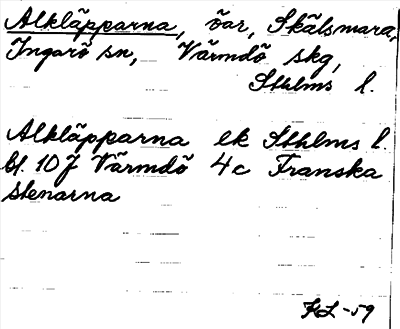 Alkläpparna, öar, Skälsmara,
Ingarö sn, Värmdö skg,
Sthlms l.
Alkläpparna ek Sthlms l.
bl. 10 J Värmdö 4c Franska
stenarna
HL-59